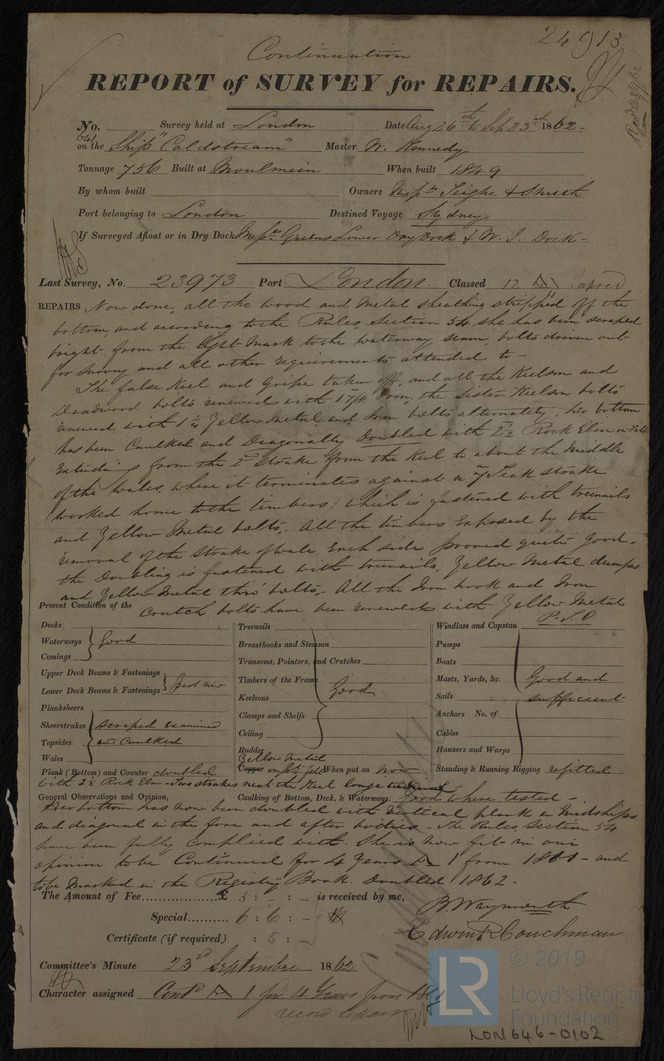 24913
Continuation
REPORT of SURVEY for REPAIRS.
No. Survey held at London Date Aug 26th to Sep 23rd 1862-
on the Ship "Coldstream" Master W. Kennedy
Tonnage 756 Built at Moulmein When built 1849
By whom built Owners Messrs Teighe & Smith
Port belonging to London Destined Voyage Sydney
If Surveyed Afloat or in Dry Dock Messrs Greens Lower Dry Dock & W. I. Dock-
Last Survey, No. 23973 Port London. Classed 12 A Lapsed
REPAIRS Now done, all the wood and Metal sheathing stripped off the
bottom, and according to the Rules, Section 54 she has been scraped
bright from the light Mark to the waterway seam, bolts driven out
for survey and all other requirements attended to -
The false Keel and Gripe taken off, and all the Keelson and
Deadwood bolts renewed with 1 7/8 Iron, the Sister Keelson bolts
renewed with 1 1/4 Yellow Metal and Iron bolts alternately, her bottom
has been Caulked and Diagonally Doubled with 2 1/2 Rock Elm
extending from the 3rd Strake from the Keel to about the Middle
of the wales, where it terminates against a Teak strake
worked home to the timbers, which is fastened with treenails
and Yellow Metal bolts. All the timbers exposed by the
removal of the strake of wale Each side proved quite Good-
the Doubling is fastened with treenails, Yellow Metal dumps
and Yellow Metal thro' bolts. All the Iron hook and Iron
Crutch bolts have been renewed with Yellow Metal
P.T.O
Present Condition of the
Decks
Waterways Good
Comings
Upper Deck Beams & Fastenings
Lower Deck Beams & Fastenings
Planksheers
Sheerstrakes Scraped examined
Topsides and Caulked
Wales
Plank (Bottom) and Counter doubled
with 2 1/2 Rock Elm Two strakes next the Keel
Treenails
Breasthooks and Stemson
Transoms, Pointers, and Crutches
Timbers of the Frame
Keelsons Good
Clamps and Shelfs
Ceiling
Rudder
Yellow Metal
Copper When put on Now
Windlass and Capstan
Pumps
Boats
Masts, Yards, &c. Good and
Sails sufficient
Anchors No. of
Cables
Hawsers and Warps
Standing & Running Rigging refitted
General Observations and Opinion, Caulking of Bottom, Deck, & Waterways Good where tested -
Her bottom has now been doubled with Vertical plank in Midships
and diagonal in the fore and after bodies - The Rules, Section 54
have been fully complied with She is now fit in our
opinion to be Continued for 4 Years A 1 from 1861 - and
to be Marked in the Registry Book Doubled 1862.
The Amount of Fee £ 5 : - : - is received by me,
Special 6 : 6 : -
Certificate (if required) : 5 : -
B. Waymouth
Edwin R Couchman
Committee's Minute 23rd September 1862
Character assigned Contd A 1 for 4 Years from 1861
record repairs
LR
© 2019
Lloyd's Register
Foundation
LON646-0102